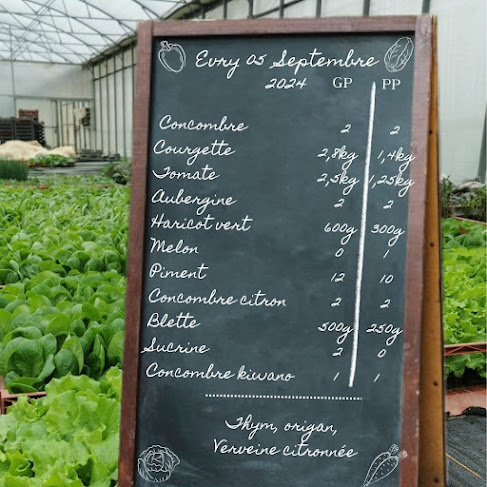 Evry 05 Septembre
2024 GP PP
Concombre 2 2
Courgette 2,8kg 1,4kg
Tomate 2,5kg 1,25kg
Aubergine 2 2
Haricot vert 600g 300g
Melon 0 1
Piment 12 10
Concombre citron 2 2
Blette 500g 250g
Sucrine 2 0
Concombre kiwano 1 1
Thym, origan,
Verveine citronnée